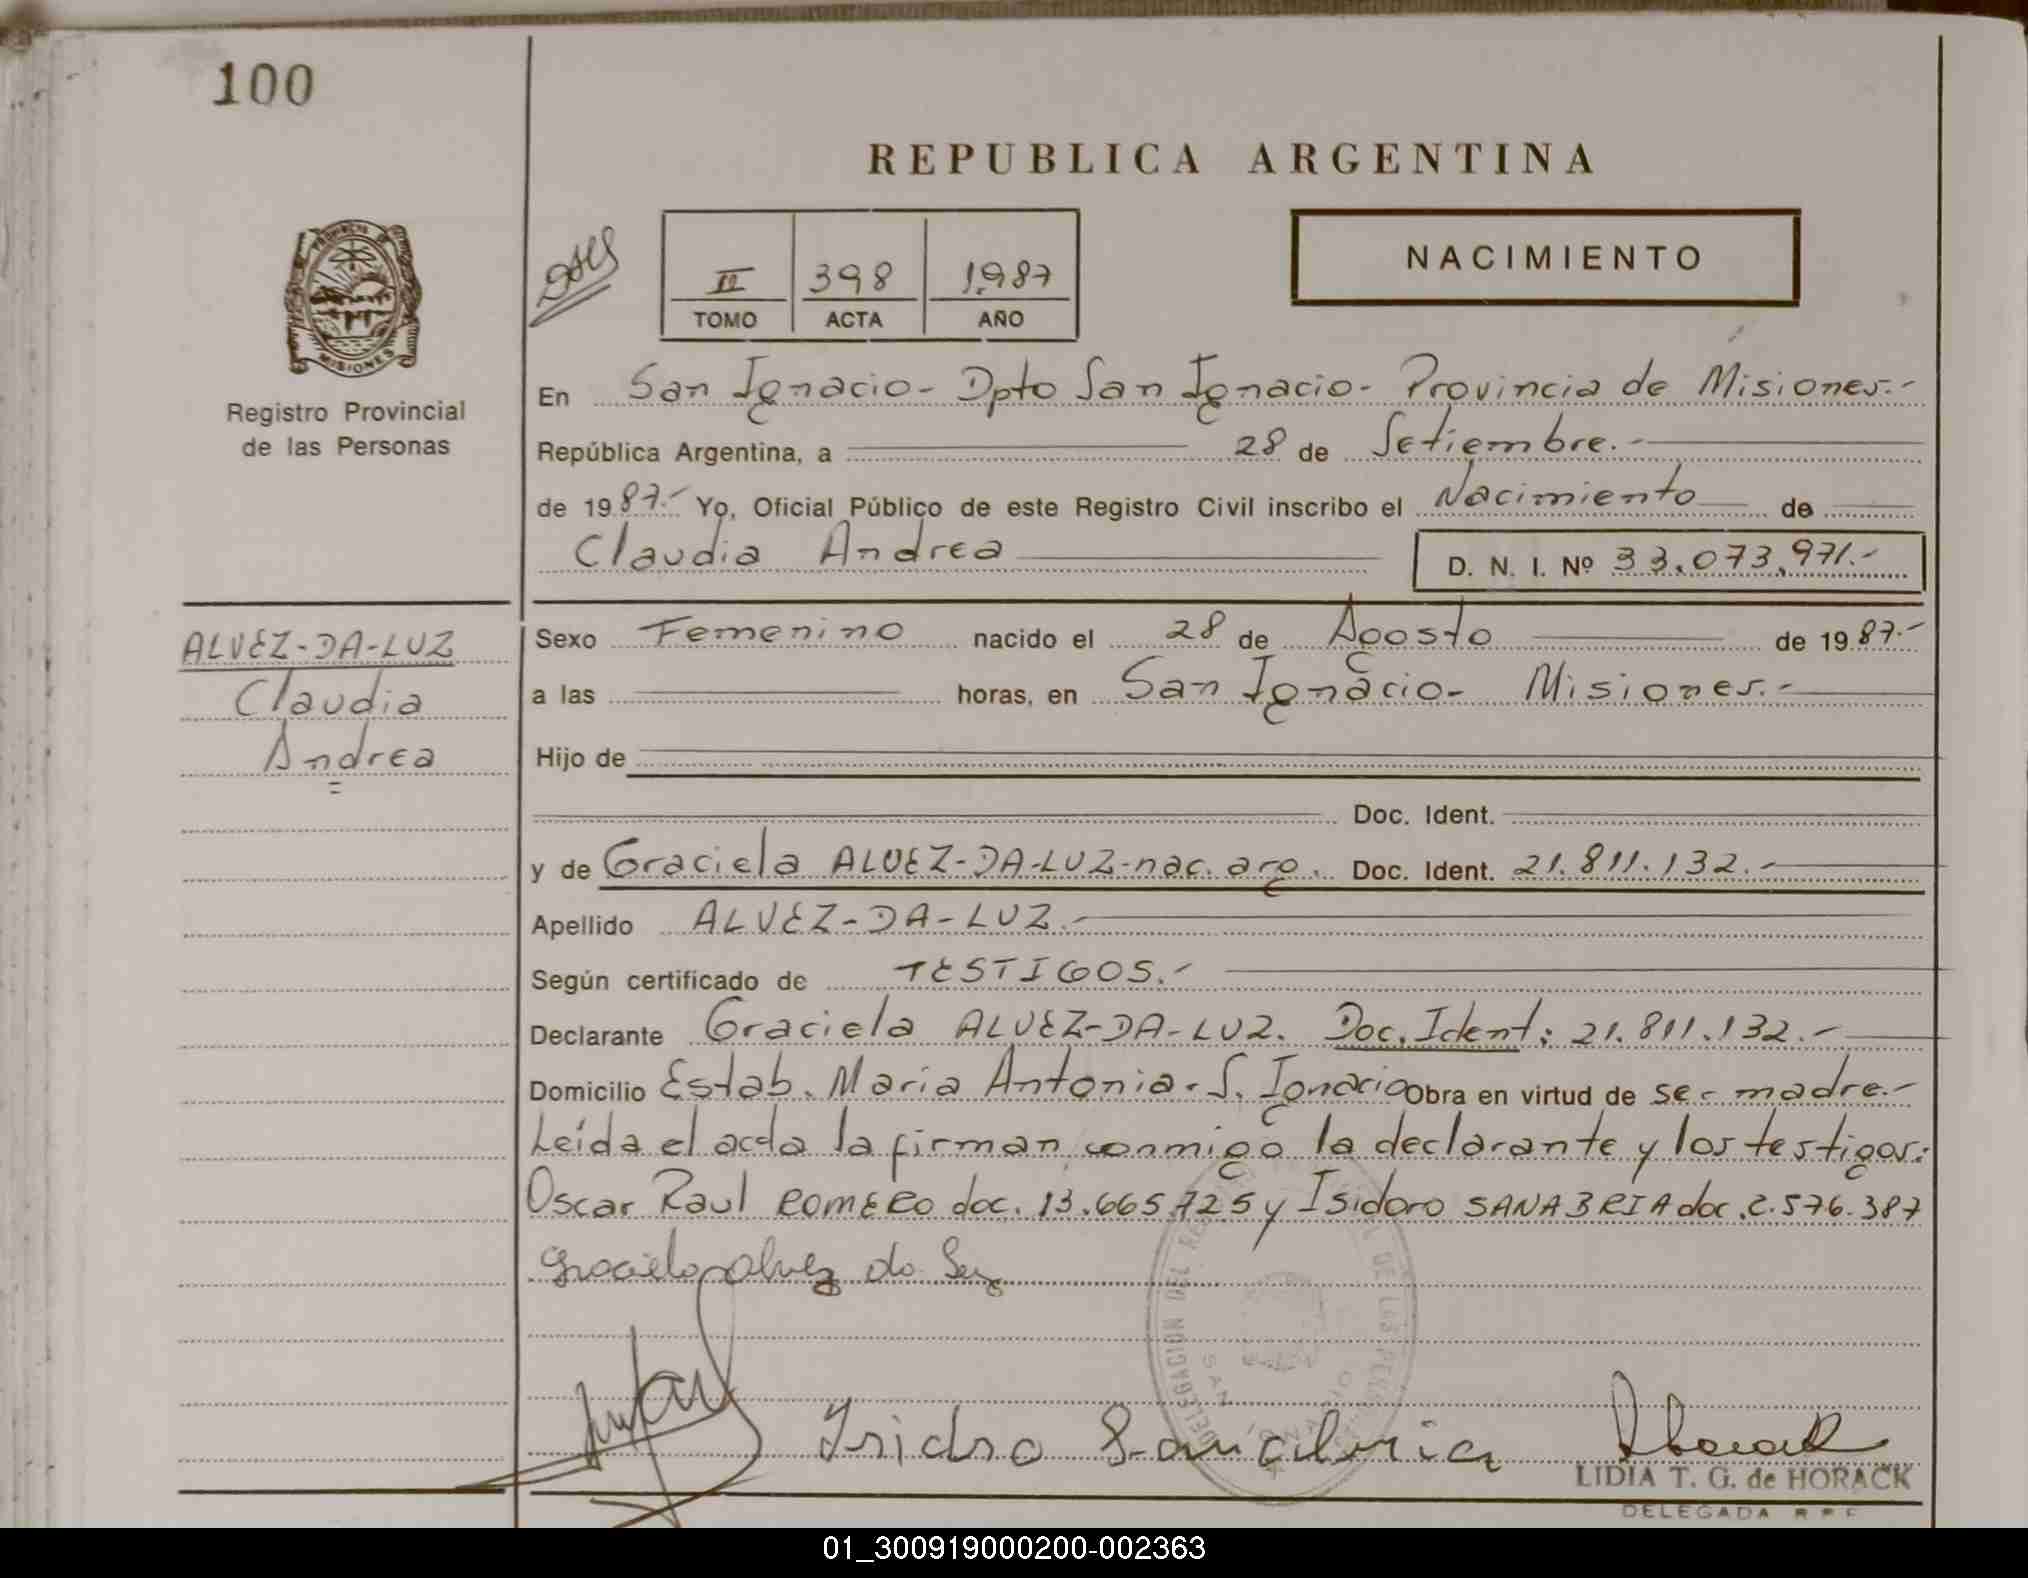 100
REPUBLICA ARGENTINA
PROVINCIA DE
MISIONES
II 398 1.987
TOMO ACTA AÑO
NACIMIENTO
Registro Provincial
de las Personas
En San Ignacio - Dpto San Ignacio - Provincia de Misiones.-
República Argentina, a 28 de Setiembre.-
de 1987.- Yo, Oficial Público de este Registro Civil inscribo el Nacimiento de
Claudia Andrea D. N. I. Nº 33.073.971.-
ALVEZ-DA-LUZ
Claudia
Andrea
Sexo Femenino nacido el 28 de Agosto de 1987.-
a las horas, en San Ignacio - Misiones.-
Hijo de
Doc. Ident.
y de Graciela ALVEZ-DA-LUZ-nac. arg. Doc. Ident. 21.811.132.-
Apellido ALVEZ-DA-LUZ.-
Según certificado de TESTIGOS.-
Declarante Graciela ALVEZ-DA-LUZ. Doc. Ident: 21.811.132.-
Domicilio Estab. Maria Antonia - S. Ignacio Obra en virtud de ser madre.-
Leída el acta la firman conmigo la declarante y los testigos:
Oscar Raul ROMERO doc. 13.665.725 y Isidoro SANABRIA doc. 2.576.387
Graciela alvez da luz
DELEGACION DEL DE LAS
SAN
Isidro Sanabria
LIDIA T. G. de HORACK
DELEGADA
01_300919000200-002363